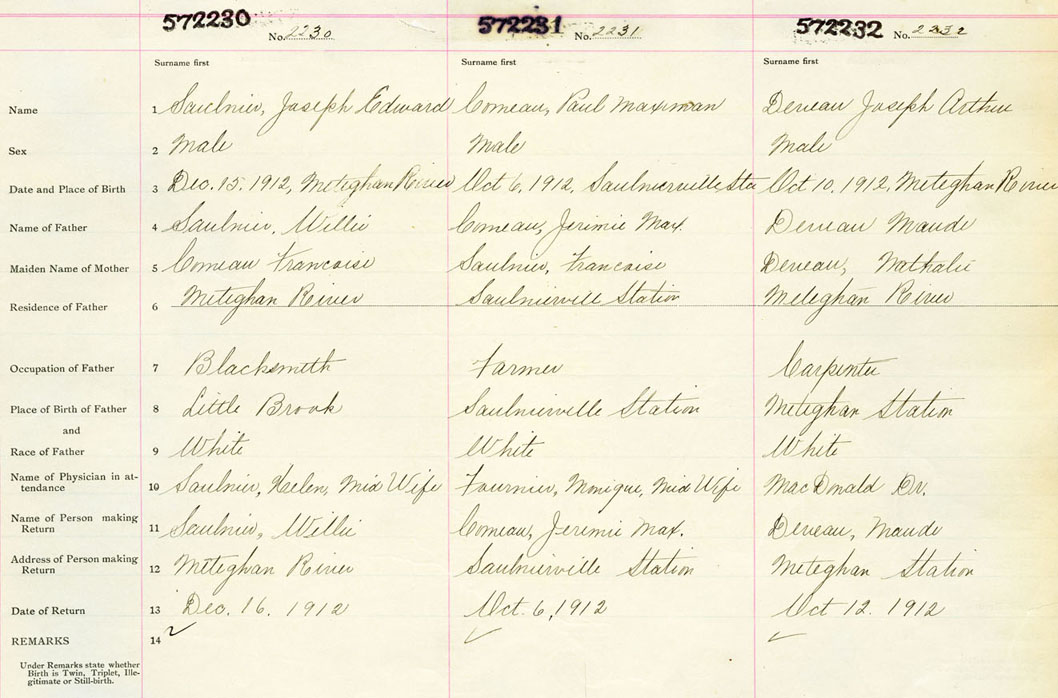 572230 No. 2230 572231 No. 2231 572232 No. 2232
Surname first Surname first Surname first
Name 1 Saulnier, Joseph Edward Comeau, Paul Maximan Deveau Joseph Arthur
Sex 2 Male Male Male
Date and Place of Birth 3 Dec. 15. 1912, Meteghan River Oct 6, 1912, Saulnierville Sta Oct 10. 1912, Meteghan River
Name of Father 4 Saulnier, Willie Comeau, Jerimie Max. Deveau Maude
Maiden Name of Mother 5 Comeau Francoise Saulnier, Francoise Deveau, Nathalie
Residence of Father 6 Meteghan River Saulnierville Station Meteghan River
Occupation of Father 7 Blacksmith Farmer Carpenter
Place of Birth of Father 8 Little Brook Saulnierville Station Meteghan Station
and
Race of Father 9 White White White
Name of Physician in at-
tendance 10 Saulnier, Helen, Mid Wife Fournier, Monique, Mid Wife MacDonald Dr.
Name of Person making
Return 11 Saulnier, Willie Comeau, Jeremie Max. Deveau, Maude
Address of Person making
Return 12 Meteghan River Saulnierville Station Meteghan Station
Date of Return 13 Dec. 16. 1912 Oct. 6, 1912 Oct 12. 1912
REMARKS 14
Under Remarks state whether
Birth is Twin, Triplet, Ille-
gitimate or Still-birth.